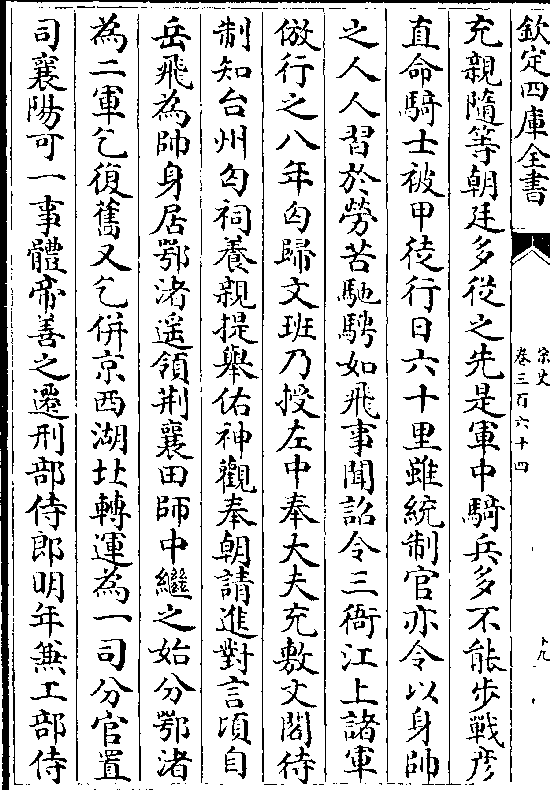 欽定四庫全書
宋史
卷三百六十四
十九
充親隨等朝廷多從之先是軍中騎兵多不能步戰彥
直命騎士被甲徒行日六十里雖統制官亦令以身帥
之人人習於勞苦馳騁如飛事聞詔令三衙江上諸軍
倣行之八年匄歸文班乃授左中奉大夫充敷文閣待
制知台州匄祠養親提舉佑神觀奉朝請進對言頃自
岳飛為帥身居鄂渚遥領荆襄田師中繼之始分鄂渚
為二軍乞復舊又乞併京西湖北轉運為一司分官置
司襄陽可一事體帝善之遷刑部侍郎明年兼工部侍